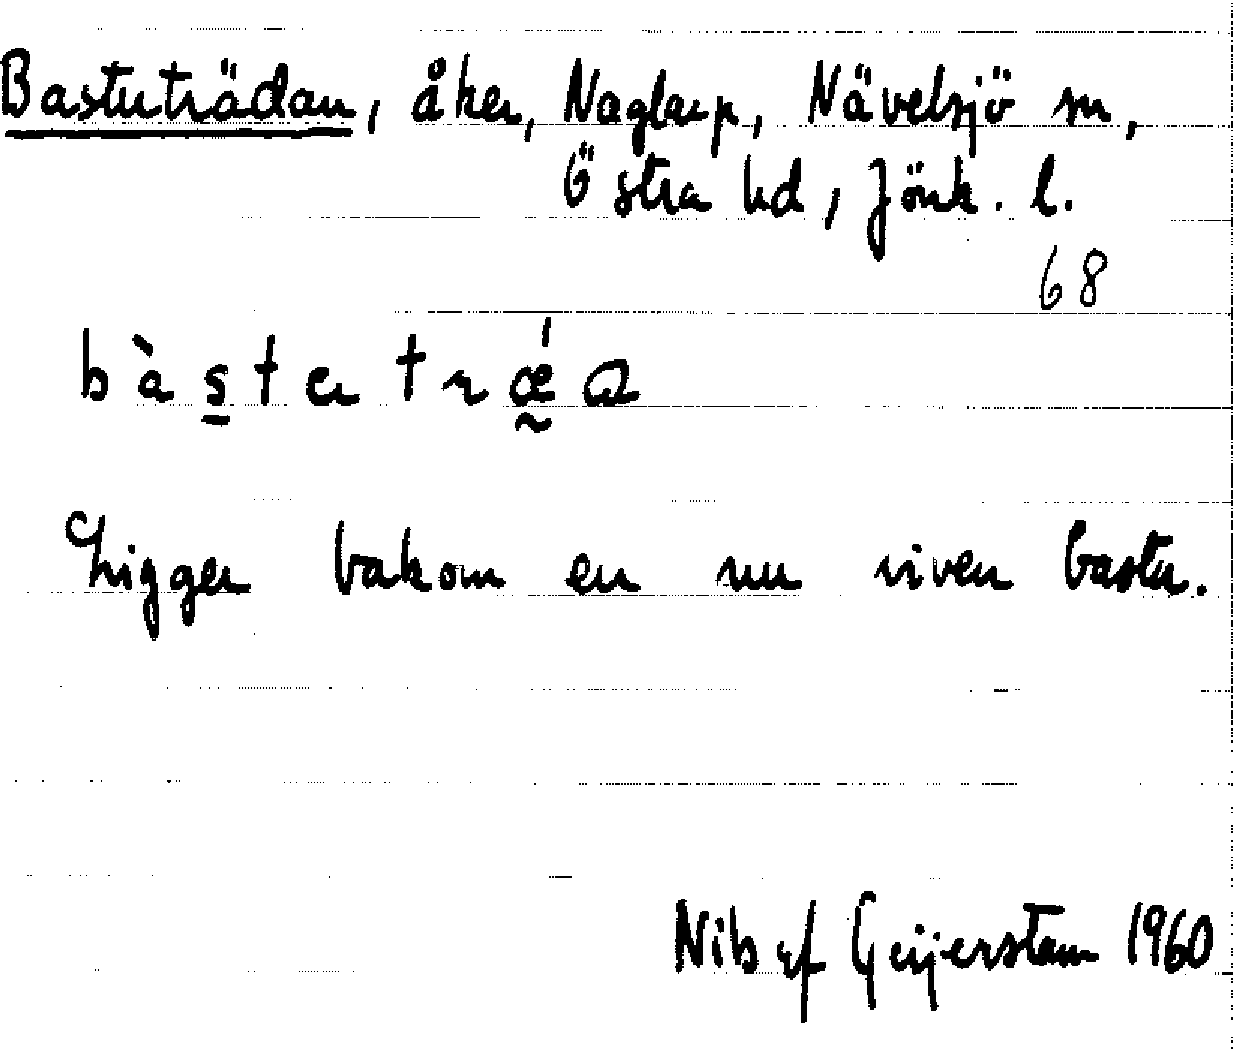 Bastuträdan, åker, Naglarp, Nävelsjö sn,
Östra hd, Jönk. l.
68
bàs̲tɐtrǽ̰ɑ
Ligger bakom en nu riven bastu.
Nils af Geijerstam 1960